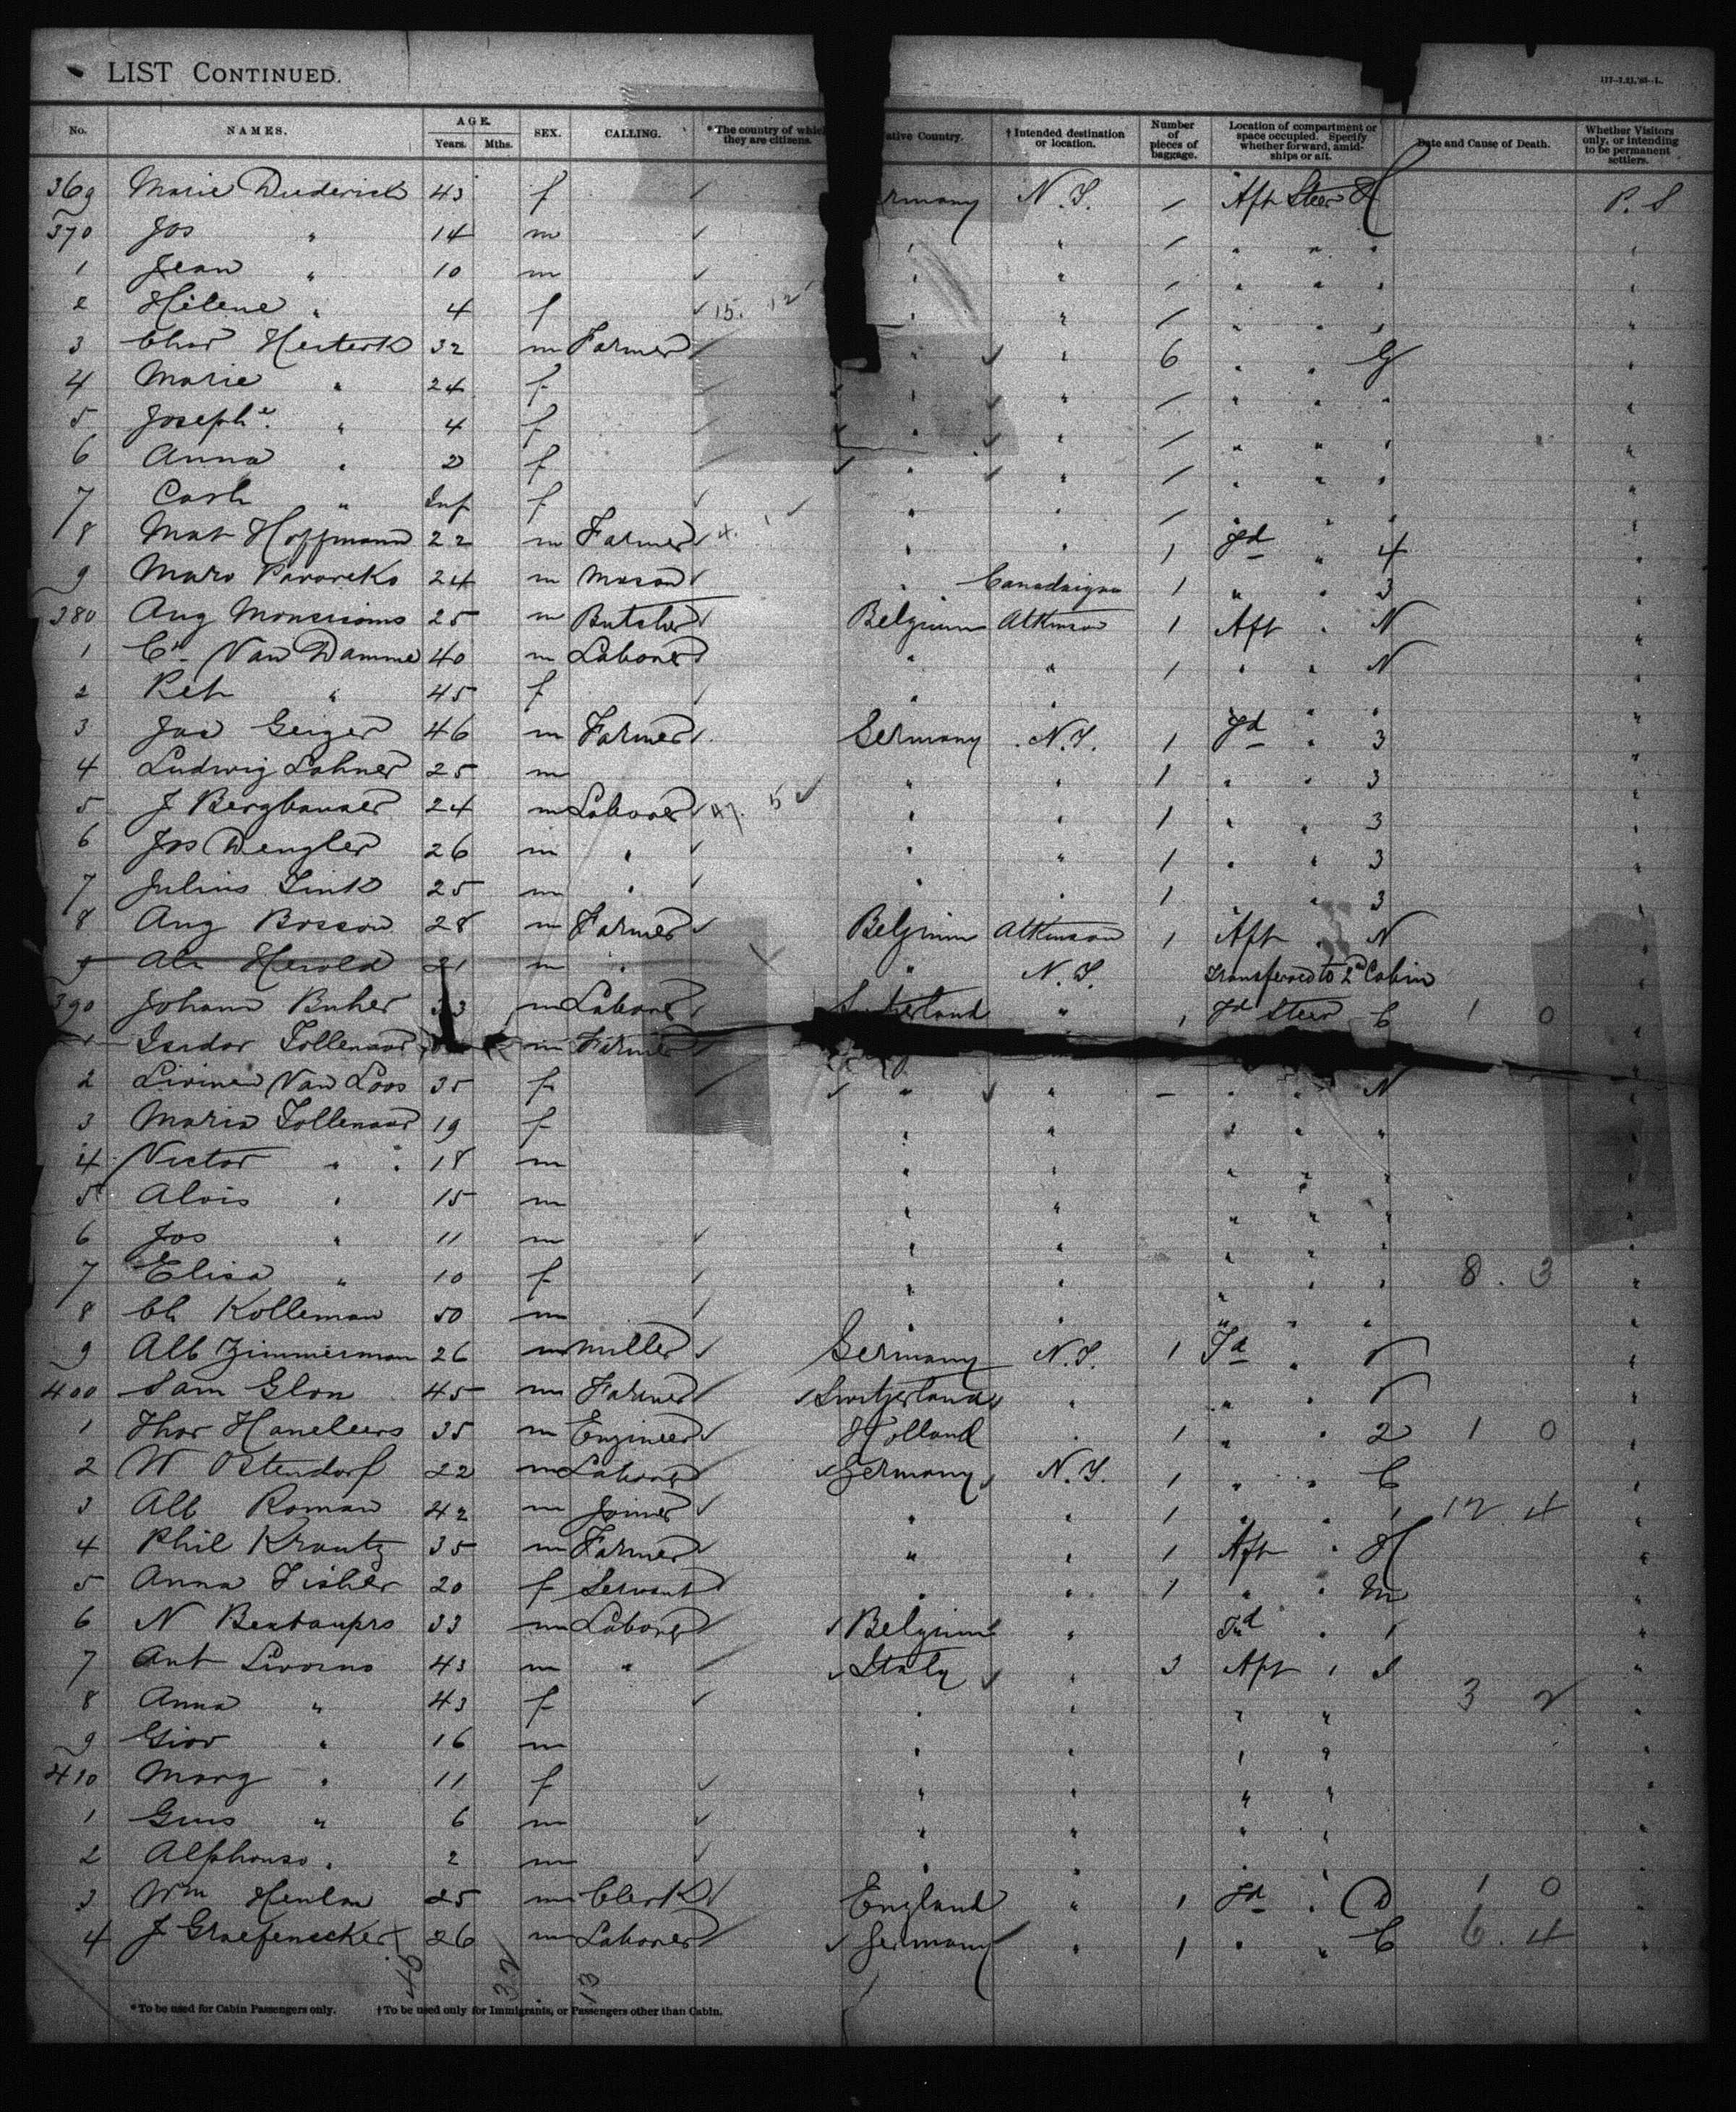 LIST CONTINUED.
No. NAMES. AGE. Years. Mths. SEX. CALLING. *The country of which they are citizens. ative Country. †Intended destination or location. Number of pieces of baggage. Location of compartment or space occupied. Specify whether forward, amidships or aft. Date and Cause of Death. Whether Visitors only, or intending to be permanent settlers.
369 Marie Diederich 43 f rmany N.Y. / Aft Steer H P. S
370 Jos " 14 m " " / " " " "
1 Jean " 10 m " " / " " " "
2 Hélene " 4 f 15. 12 " " / " " " "
3 Char 32 m Farmer " " 6 " " G "
4 Marie " 24 f " " / " " " "
5 Josephe " 4 f " " / " " " "
6 Anna " 2 f " " / " " " "
7 " Inf f " " / " " " "
8 Mat Hoffmann 22 m Farmer " " 1 Fd " 4 "
9 24 m Mason " Canadaigua 1 " " 3 "
380 Aug 25 m Butcher Belgium Atkinson 1 Aft " N "
1 Van Damme 40 m Laborer " " 1 " " N "
2 " 45 f " " " " " "
3 Jos Geiger 46 m Farmer Germany N.Y. 1 Fd " 3 "
4 Ludwig Lohner 25 m " " 1 " " 3 "
5 J Bergbauer 24 m Laborer 5 " " 1 " " 3 "
6 Jos Dengler 26 m " " " 1 " " 3 "
7 Julius Link 25 m " " " 1 " " 3 "
8 Aug Bosson 28 m Farmer Belgium Atkinson 1 Aft " N "
9 Herold 21 m " " N.Y. Transferred to 2nd Cabin "
390 Johann Buher 33 m Laborer N " 1 Fd Steer C 1 0 "
1 Isidor Tollenaar m Farmer
2 Van Loos 35 f " " – " " N "
3 Maria Tollenaar 19 f " " " " " "
4 Victor " 18 m " " " " " "
5 Alois " 15 m " " " " " "
6 Jos " 11 m " " " " " "
7 Elisa " 10 f " " " " " 8. 3 "
8 Ch Kolleman 50 m " " " " " "
9 Alb Zimmerman 26 m Miller Germany N.Y. 1 Fd " "
400 Sam Glon 45 m Farmer Switzerland " " " "
1 35 m Engineer Holland " 1 " " 2 1 0 "
2 W Ostendorf 22 m Laborer Germany N.Y. 1 " " C "
3 Alb Roman 42 m Joiner " " 1 " " 1 12. 4 "
4 Phil Krantz 35 m Farmer " " 1 Aft " H "
5 Anna Fisher 20 f Servant " " 1 " " M "
6 N 33 m Laborer Belgium " Fd " 1 "
7 Ant Livorno 43 m " Italy " 3 Aft " "
8 Anna " 43 f " " " " 3 2 "
9 Giov " 16 m " " " " "
410 Marg " 11 f " " " " "
1 " 6 m " " " " "
2 Alphonso " 2 m " " " " "
3 Wm 25 m Clerk England " 1 Fd " D 1 0 "
4 J Graefenecker 26 m Laborer Germany " 1 " " C 6. 4 "
32 13
*To be used for Cabin Passengers only. †To be used only for Immigrants, or Passengers other than Cabin.